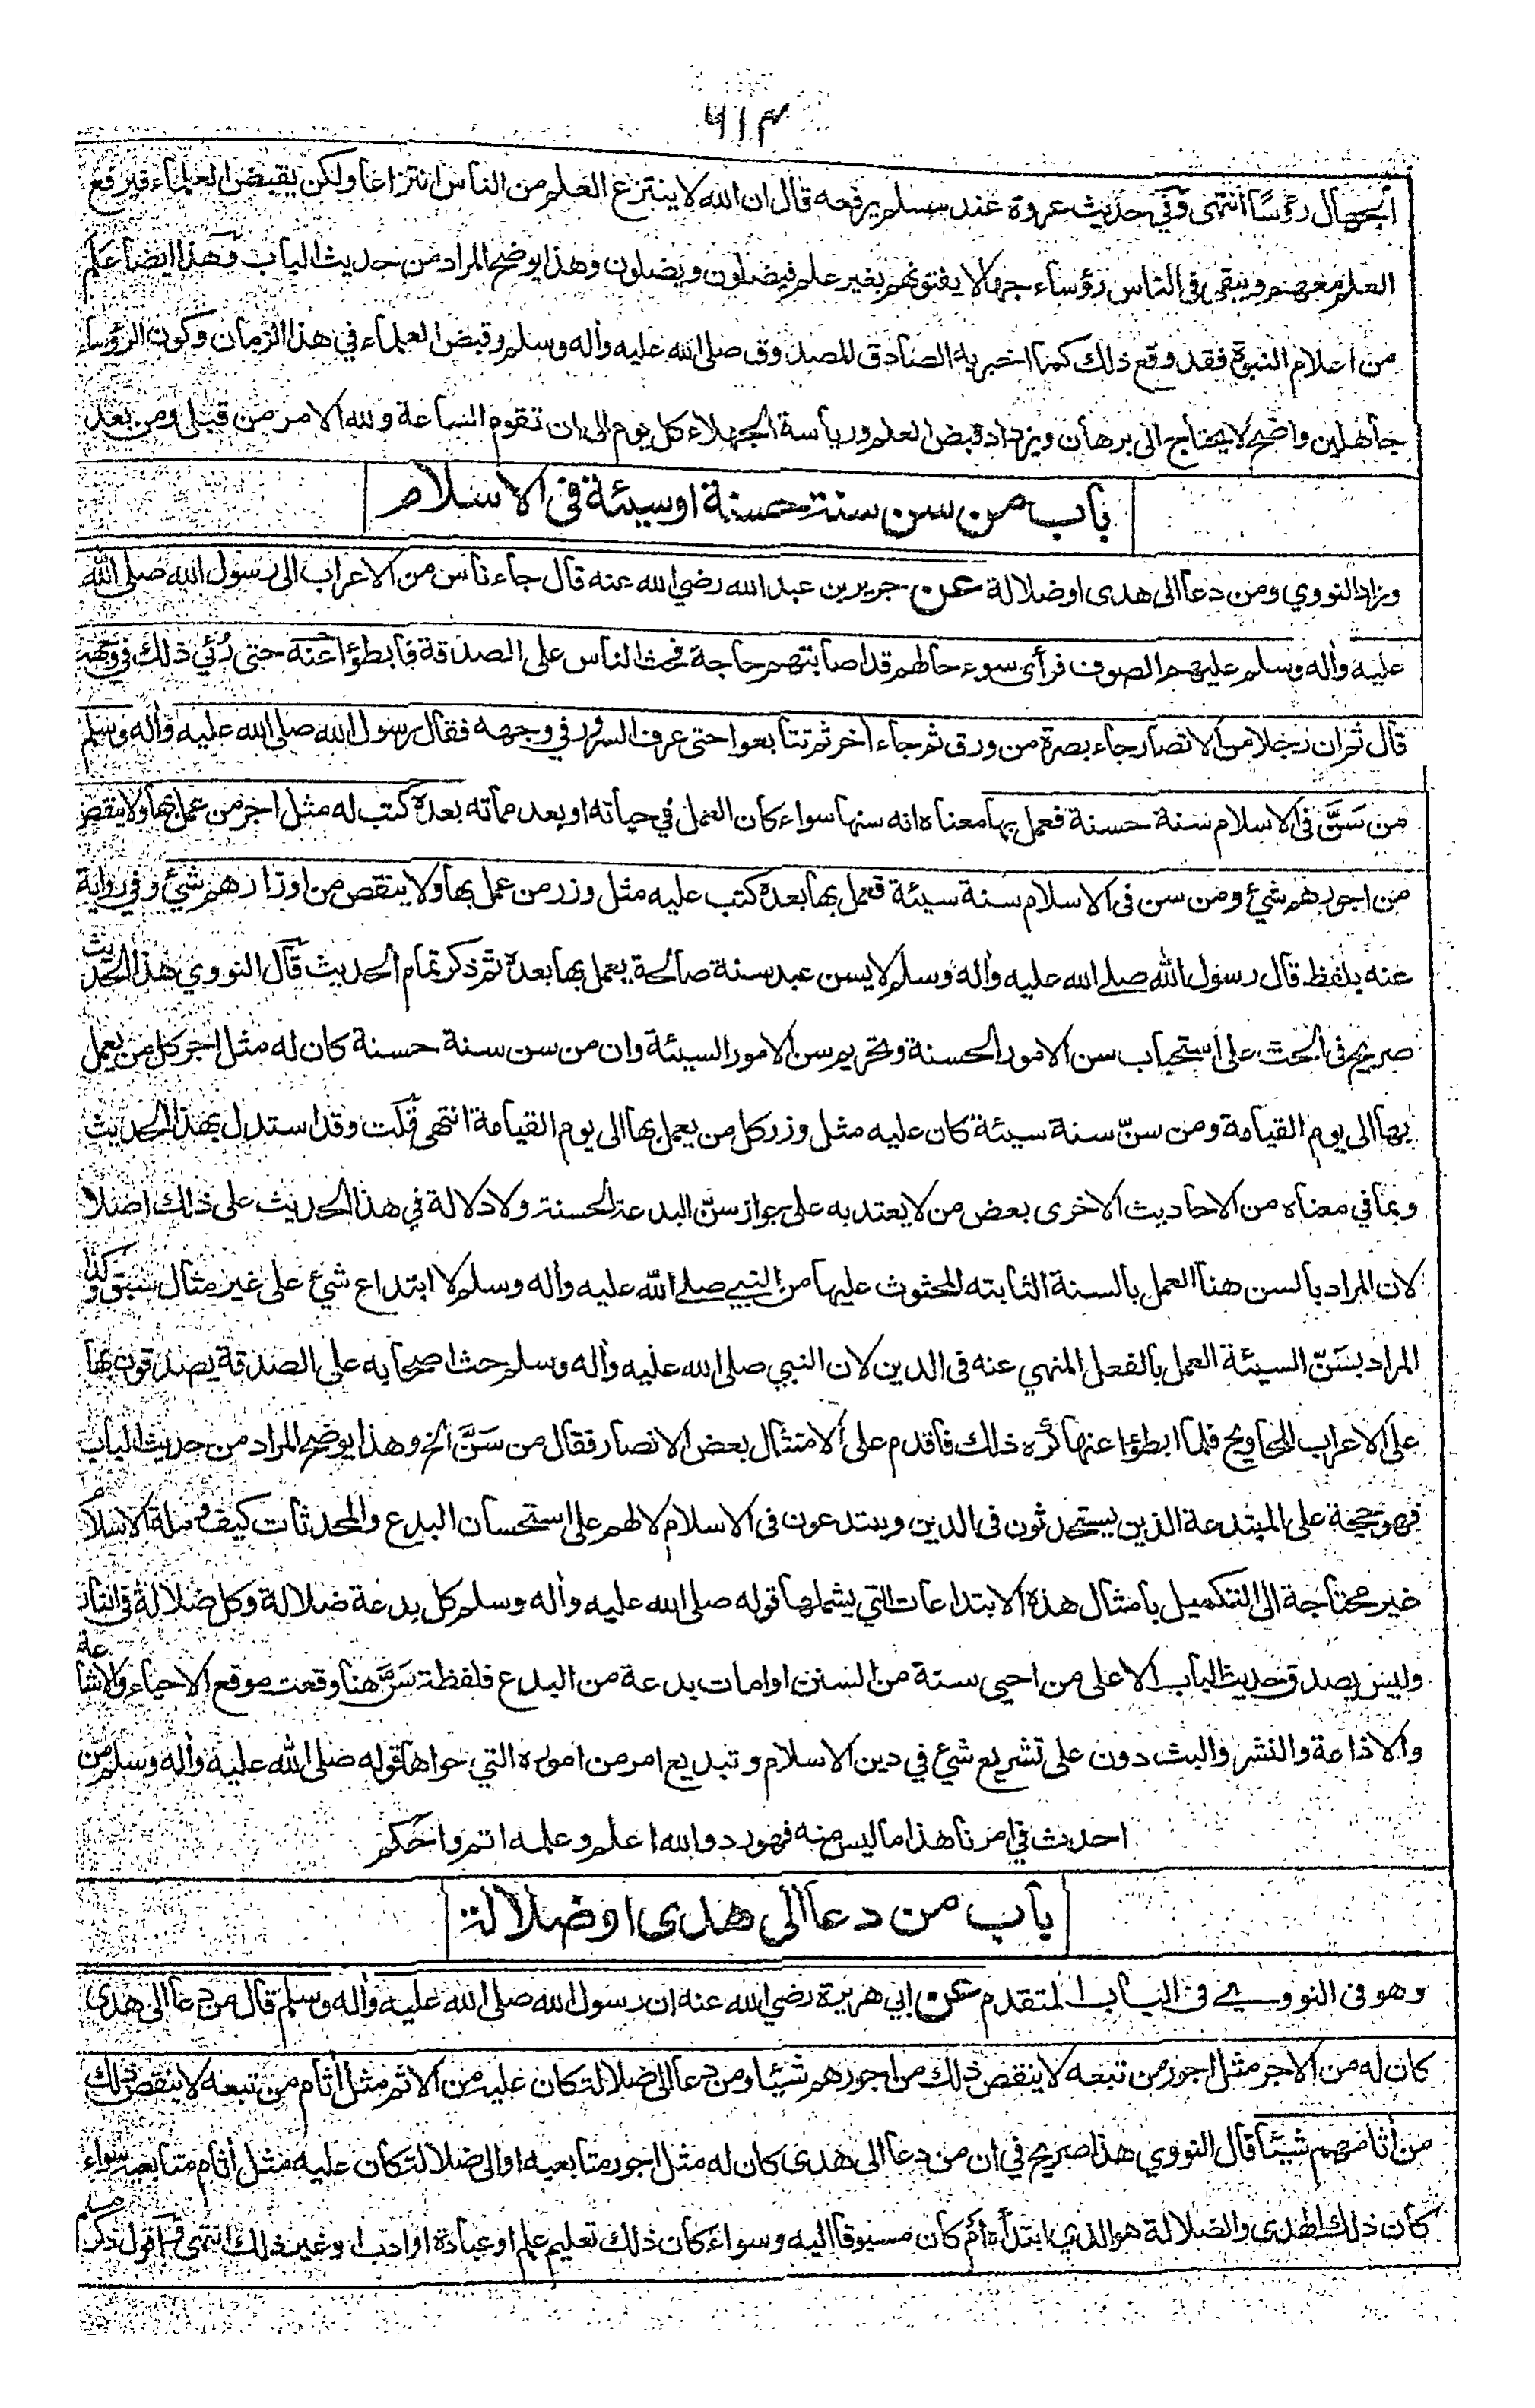 ٦١٣
الجهال رؤسا انتهى وفي حديث عروة عند مسلم يرفعه قال ان الله لا ينتزع العلم من الناس انتزاعا ولكن يقبض العلماء فيرفع
العلم معهم ويبقى فى الناس رؤساء جهالا يفتونهم بغير علم فيضلون ويضلون وهذا يوضح المراد من حديث الباب وهذا ايضا علم
من اعلام النبوة فقد وقع ذلك كما اخبر به الصادق المصدوق صلى الله عليه وأله وسلم وقبض العلماء في هذا الزمان وكون الرؤساء
جاهلين واضح لا يحتاج الى برهان ويزداد قبض العلم ورياسة الجهلاء كل يوم الى ان تقوم الساعة ولله الامر من قبل ومن بعد
باب من سن سنة حسنة اوسيئة فى الاسلام
وزاد النووي ومن دعا الى هدى اوضلالة عن جرير بن عبد الله رضي الله عنه قال جاء ناس من الاعراب الى رسول الله صلى الله
عليه وأله وسلم عليهم الصوف فرأى سوء حالهم قد اصابتهم حاجة فحث الناس على الصدقة فابطؤا عنه حتى رُئي ذلك في وجهه
قال ثم ان رجلا من الانصار جاء بصرة من ورق ثم جاء أخر ثم تتابعوا حتى عرف السرور في وجهه فقال رسول الله صلى الله عليه وأله وسلم
من سَنَّ فى الاسلام سنة حسنة فعمل بها معناه انه سنها سواء كان العمل في حياته او بعد مماته بعده كتب له مثل اجر من عمل بها ولا ينقص
من اجورهم شيء ومن سن فى الاسلام سنة سيئة فعمل بها بعده كتب عليه مثل وزر من عمل بها ولا ينقص من اوزارهم شيء وفي رواية
عنه بلفظ قال رسول الله صلى الله عليه وأله وسلم لا يسن عبد سنة صالحة يعمل بها بعده ثم ذكر تمام الحديث قال النووي هذا الحديث
صريح فى الحث على استحباب سن الامور الحسنة وتحريم سن الامور السيئة وان من سن سنة حسنة كان له مثل اجر كل من يعمل
بها الى يوم القيامة ومن سنّ سنة سيئة كان عليه مثل وزر كل من يعمل بها الى يوم القيامة انتهى قلت وقد استدل بهذا الحديث
وبما في معناه من الاحاديث الاخرى بعض من لا يعتد به على جواز سنّ البدعة الحسنة ولا دلالة في هذا الحديث على ذلك اصلا
لان المراد بالسن هنا العمل بالسنة الثابته المحثوث عليها من النبي صلى الله عليه وأله وسلم لا ابتداع شيء على غير مثال سبق وكذا
المراد بسَنّ السيئة العمل بالفعل المنهي عنه فى الدين لان النبي صلى الله عليه وأله وسلم حث اصحابه على الصدقة يصدقون بها
على الاعراب المحاويج فلما ابطؤا عنها كره ذلك فاقدم على الامتثال بعض الانصار فقال من سَنَّ الخ وهذا يوضح المراد من حديث الباب
فهو حجة على المبتدعة الذين يستحدثون فى الدين ويبتدعون فى الاسلام لا لهم على استحسان البدع والمحدثات كيف وملة الاسلام
غير محتاجة الى التكميل بامثال هذه الابتداعات التي يشملها قوله صلى الله عليه وأله وسلم كل بدعة ضلالة وكل ضلالة فى النار
وليس يصدق حديث الباب الا على من احيى سنة من السنن او امات بدعة من البدع فلفظة سَنَّ هنا وقعت موقع الاحياء والاشاعة
والاذاعة والنشر والبث دون على تشريع شيء في دين الاسلام وتبديع امر من اموره التي حواها قوله صلى الله عليه وأله وسلم من
احدث في امرنا هذا ما ليس منه فهو رد والله اعلم وعلمه اتم واحكم
باب من دعا الى هدى اوضلالة
وهو فى النووي فى الباب المتقدم عن ابي هريرة رضي الله عنه ان رسول الله صلى الله عليه وأله وسلم قال من دعا الى هدى
كان له من الاجر مثل اجور من تبعه لا ينقص ذلك من اجورهم شيئا ومن دعا الى ضلالة كان عليه من الاثم مثل أثام من تبعه لا ينقص ذلك
من أثامهم شيئا قال النووي هذا صريح في ان من دعا الى هدى كان له مثل اجور متابعيه او الى ضلالة كان عليه مثل أثام متابعيه سواء
كان ذلك الهدى والضلالة هو الذي ابتدأه أم كان مسبوقا اليه وسواء كان ذلك تعليم علم او عبادة او ادب او غير ذلك انتهى واقول ذكر